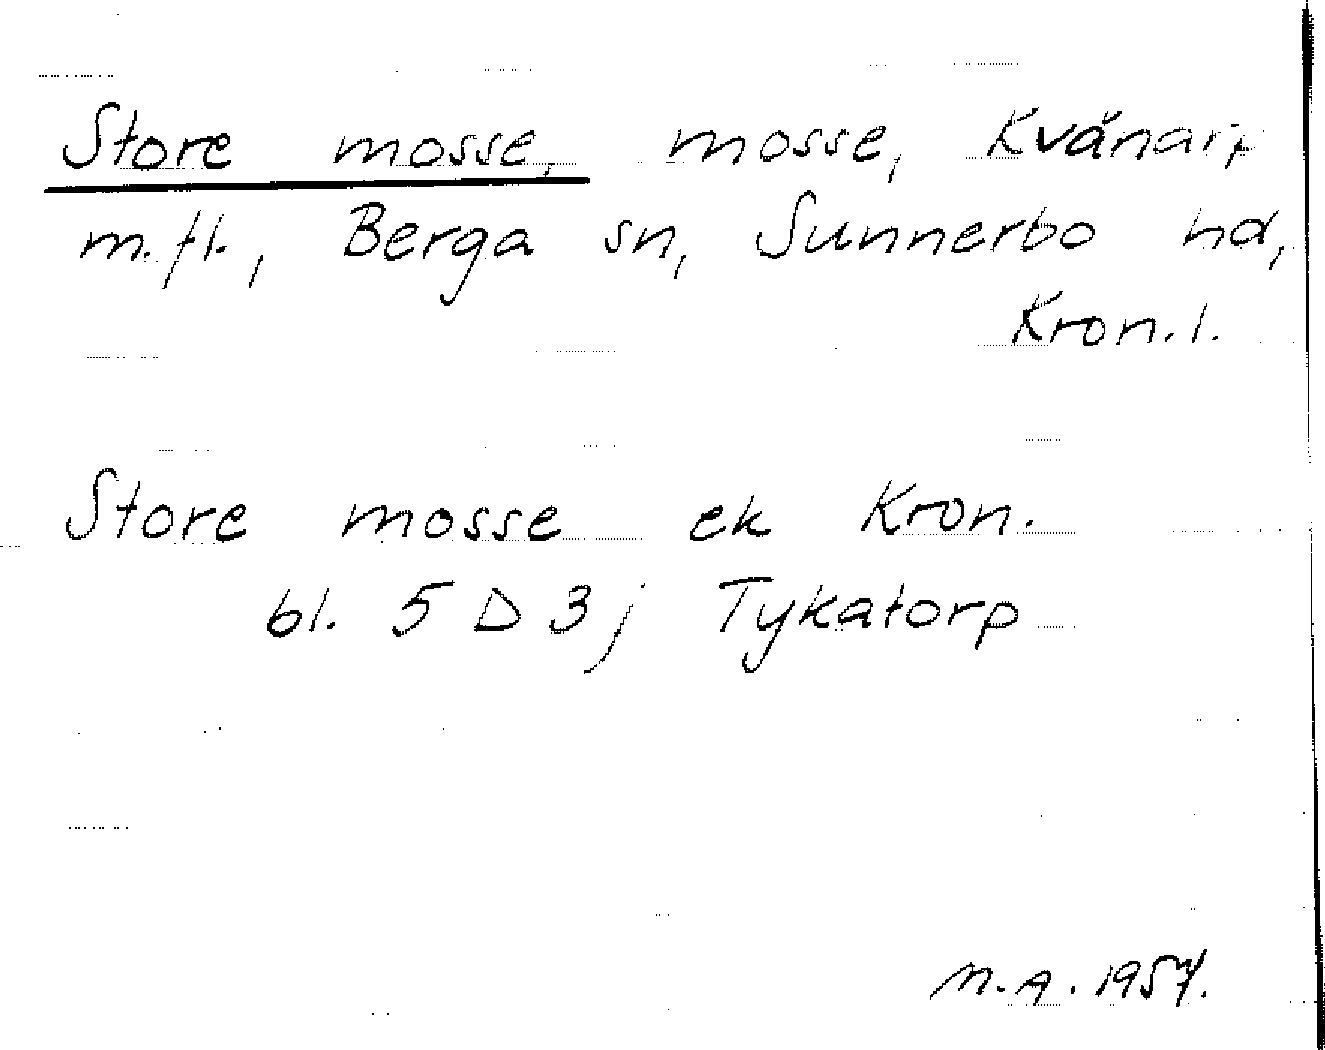 Store mosse, mosse, Kvänarp
m.fl., Berga sn, Sunnerbo hd,
Kron.l.
Store mosse ek Kron.
bl. 5 D 3j Tykatorp
M.A. 1957.